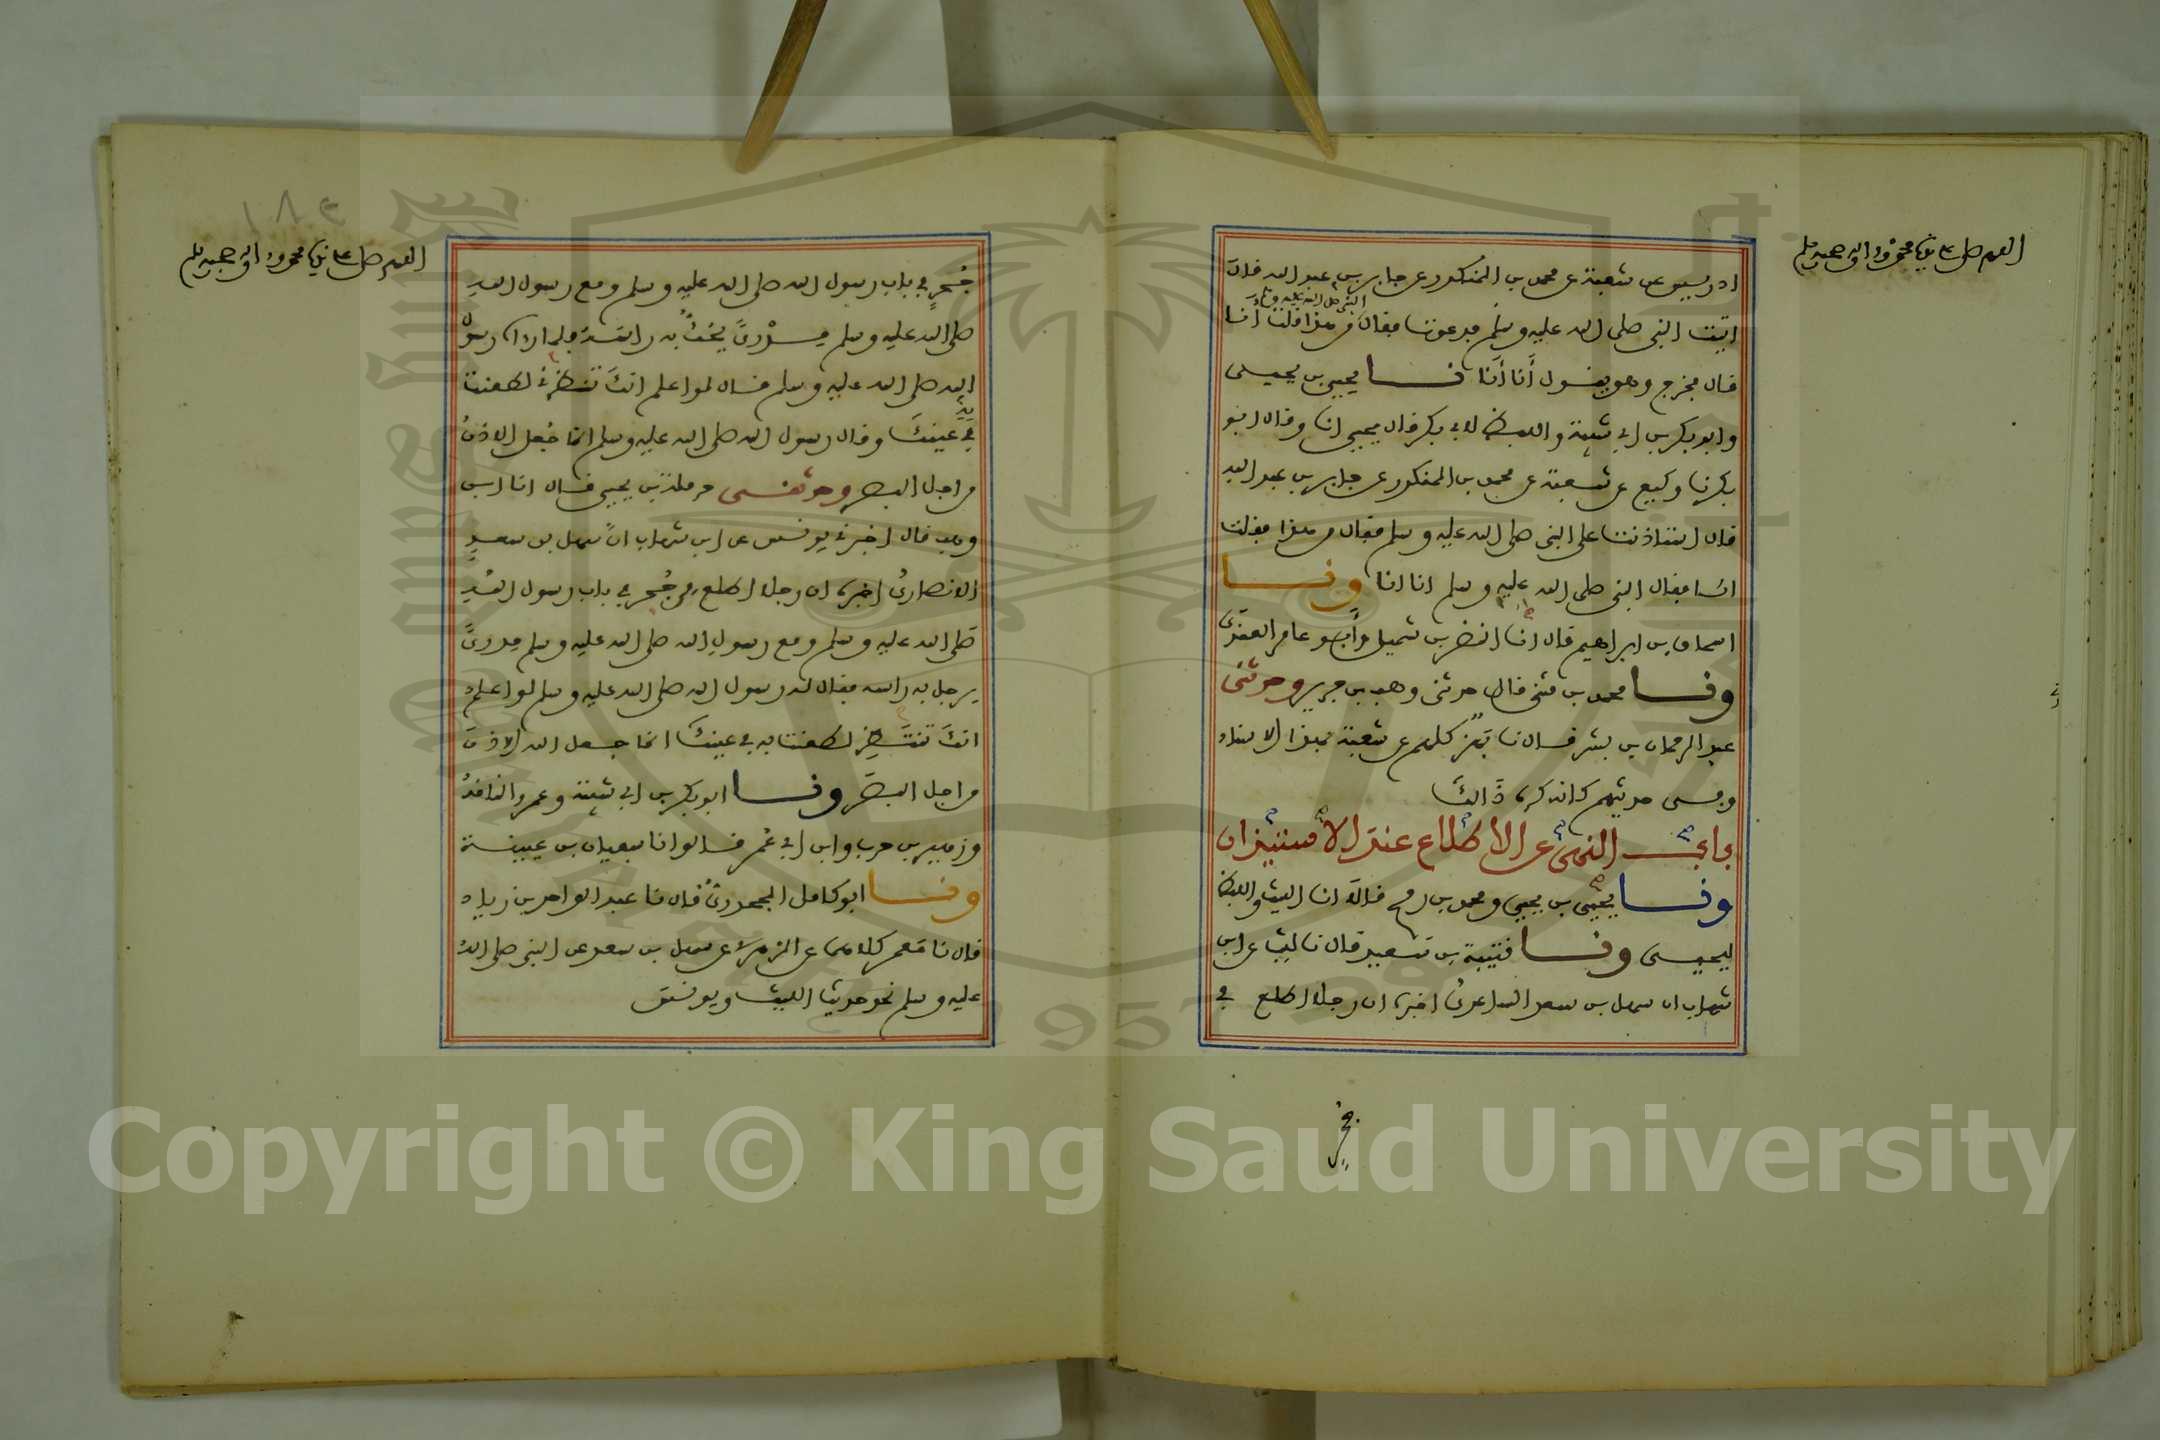 اللهم صل على نبينا محمد وآله وصحبه وسلم
ادريس عن شعبة عن محمد بن المنكدر عن جابر بن عبد الله قال
النبي صلى الله عليه وسلم
اتيت النبي صلى الله عليه وسلم فدعوت فقال من هذا قلت أنا
قال فخرج وهو يقول أنا أنا نا يحيى بن يحيى
وابو بكر بن ابي شيبة واللفظ لابي بكر قال يحيى انا وقال ابو
بكر نا وكيع عن شعبة عن محمد بن المنكدر عن جابر بن عبد الله
قال استاذنت على النبي صلى الله عليه وسلم فقال من هذا فقلت
انا فقال النبي صلى الله عليه وسلم انا انا ونا
اسحاق بن ابراهيم قال انا النضر بن شميل وأبو عامر العقدي
ونا محمد بن مثنى قال حدثني وهب بن جرير وحدثني
عبد الرحمان بن بشر قال نا بهز كلهم عن شعبة بهذا الاسناد
وفي حديثهم كانه كره ذالك
باب النهي عن الاطلاع عند الاستيذان
ونا يحيى بن يحيى ومحمد بن رمح قالا انا الليث واللفظ
ليحيى ونا قتيبة بن سعيد قال نا ليث عن ابن
شهاب ان سهل بن سعد الساعدي اخبره ان رجلا اطلع في
جحر
١٨٤
اللهم صل على نبينا محمد وآله وصحبه وسلم
جحر في باب رسول الله صلى الله عليه وسلم ومع رسول الله
صلى الله عليه وسلم مدرى يحك به راسه فلما راه رسول
الله صلى الله عليه وسلم قال لو اعلم انك تنظرني لطعنت
به
في عينك وقال رسول الله صلى الله عليه وسلم انما جعل الاذن
من اجل البصر وحدثني حرملة بن يحيى قال انا ابن
وهب قال اخبرني يونس عن ابن شهاب ان سهل بن سعد
الانصاري اخبره ان رجلا اطلع من جحر في باب رسول الله
صلى الله عليه وسلم ومع رسول الله صلى الله عليه وسلم مدرى
يرجل به راسه فقال له رسول الله صلى الله عليه وسلم لو اعلم
انك تنتظر لطعنت به في عينك انما جعل الله الاذن
من اجل البصر ونا ابو بكر بن ابي شيبة وعمرو الناقد
وزهير بن حرب وابن ابي عمر قالوا انا سفيان بن عيينة
ونا ابو كامل الجحدري قال نا عبد الواحد بن زياد
قال نا معمر كلاهما عن الزهري عن سهل بن سعد عن النبي صلى الله
عليه وسلم نحو حديث الليث ويونس
Copyright © King Saud University
1957